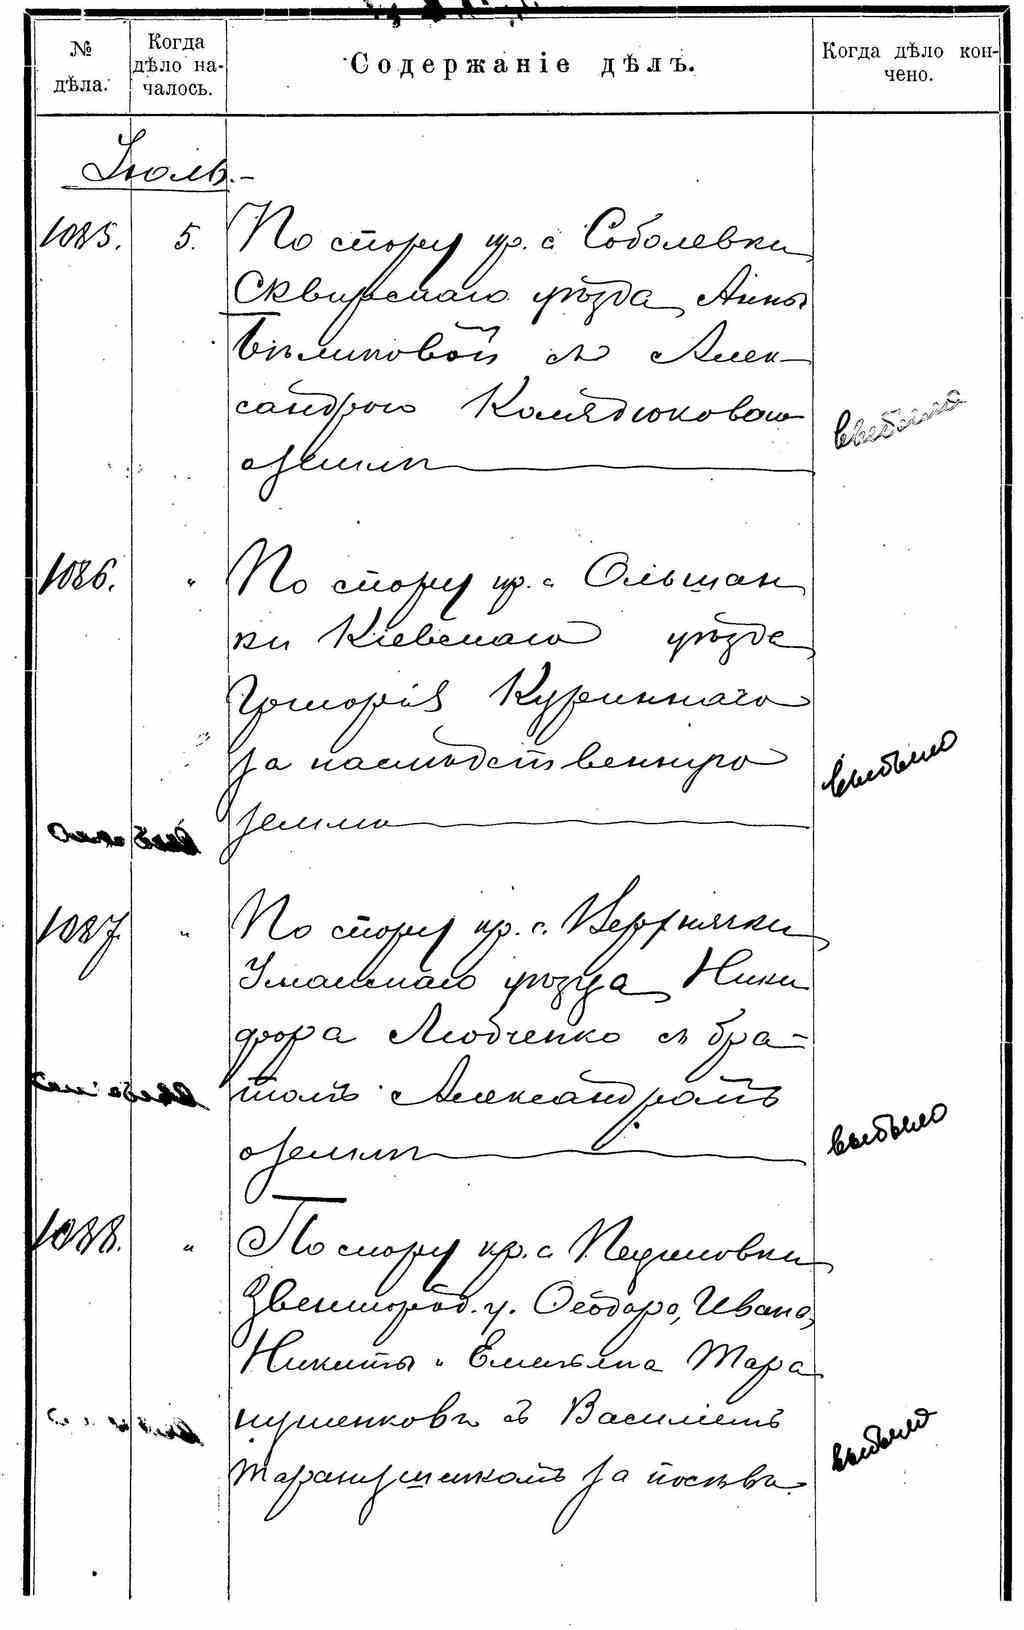 № дѣла.
Когда дѣло на-
чалось.
Содержаніе дѣлъ.
Когда дѣло кон-
чено.
Іюль.-
1085. 5. По спору кр. с Соболевки
Сквирскаго уѣзда Анны
Бѣликовой съ Алек-
сандрою Колядюковою
о землѣ
выбыло
1086. " По спору кр. с Ольшан
ки Кіевскаго уѣзда
Григорія Куриннаго
за наслѣдственную
землю
выбыло
1087. " По спору кр. с. Верхнячки
Уманскаго уѣзда Ники
фора Любченко съ бра-
томъ Александромъ
о землѣ
выбыло
1088. " По спору кр. с
Звенигород. у. Ѳеодора, Ивана,
Никиты и Емельяна Тара
нушенковъ съ Василіемъ
Таранушенкомъ за посѣвы
выбыло